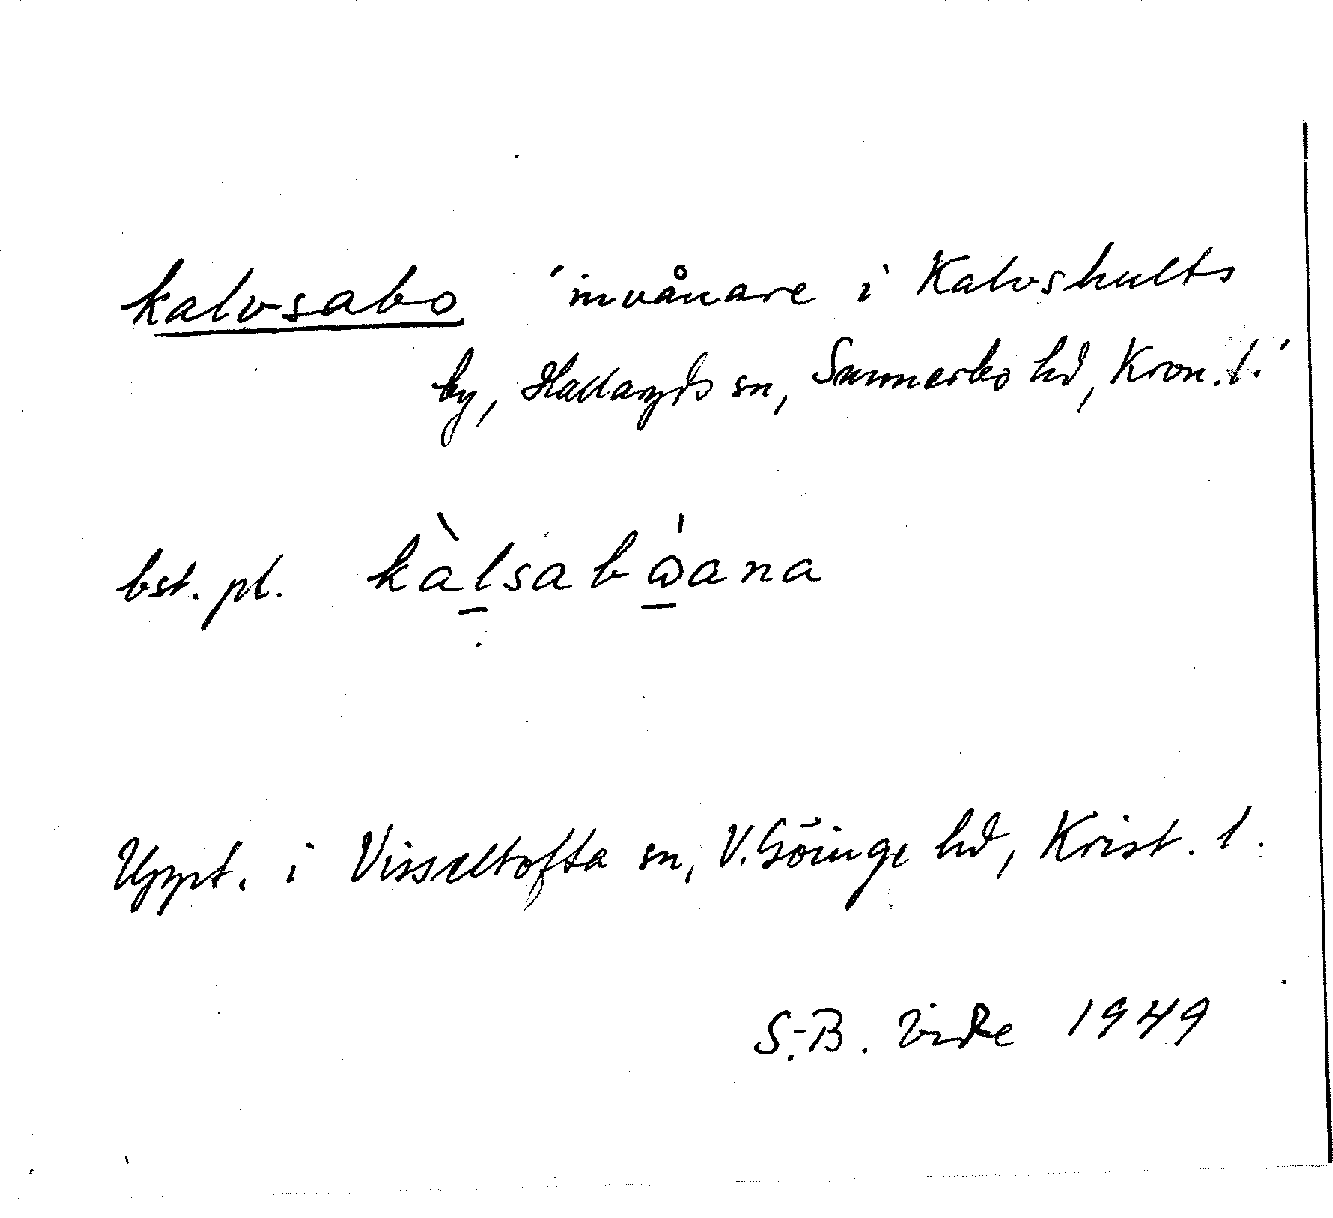 kalvsabo 'invånare i Kalvshults
by, Hallaryds sn, Sunnerbo hd, Kron. l.'
bst. pl. kàl̠sabώ̠ana
Uppt. i Visseltofta sn, V. Göinge hd, Krist. l.
S.-B. Vide 1949